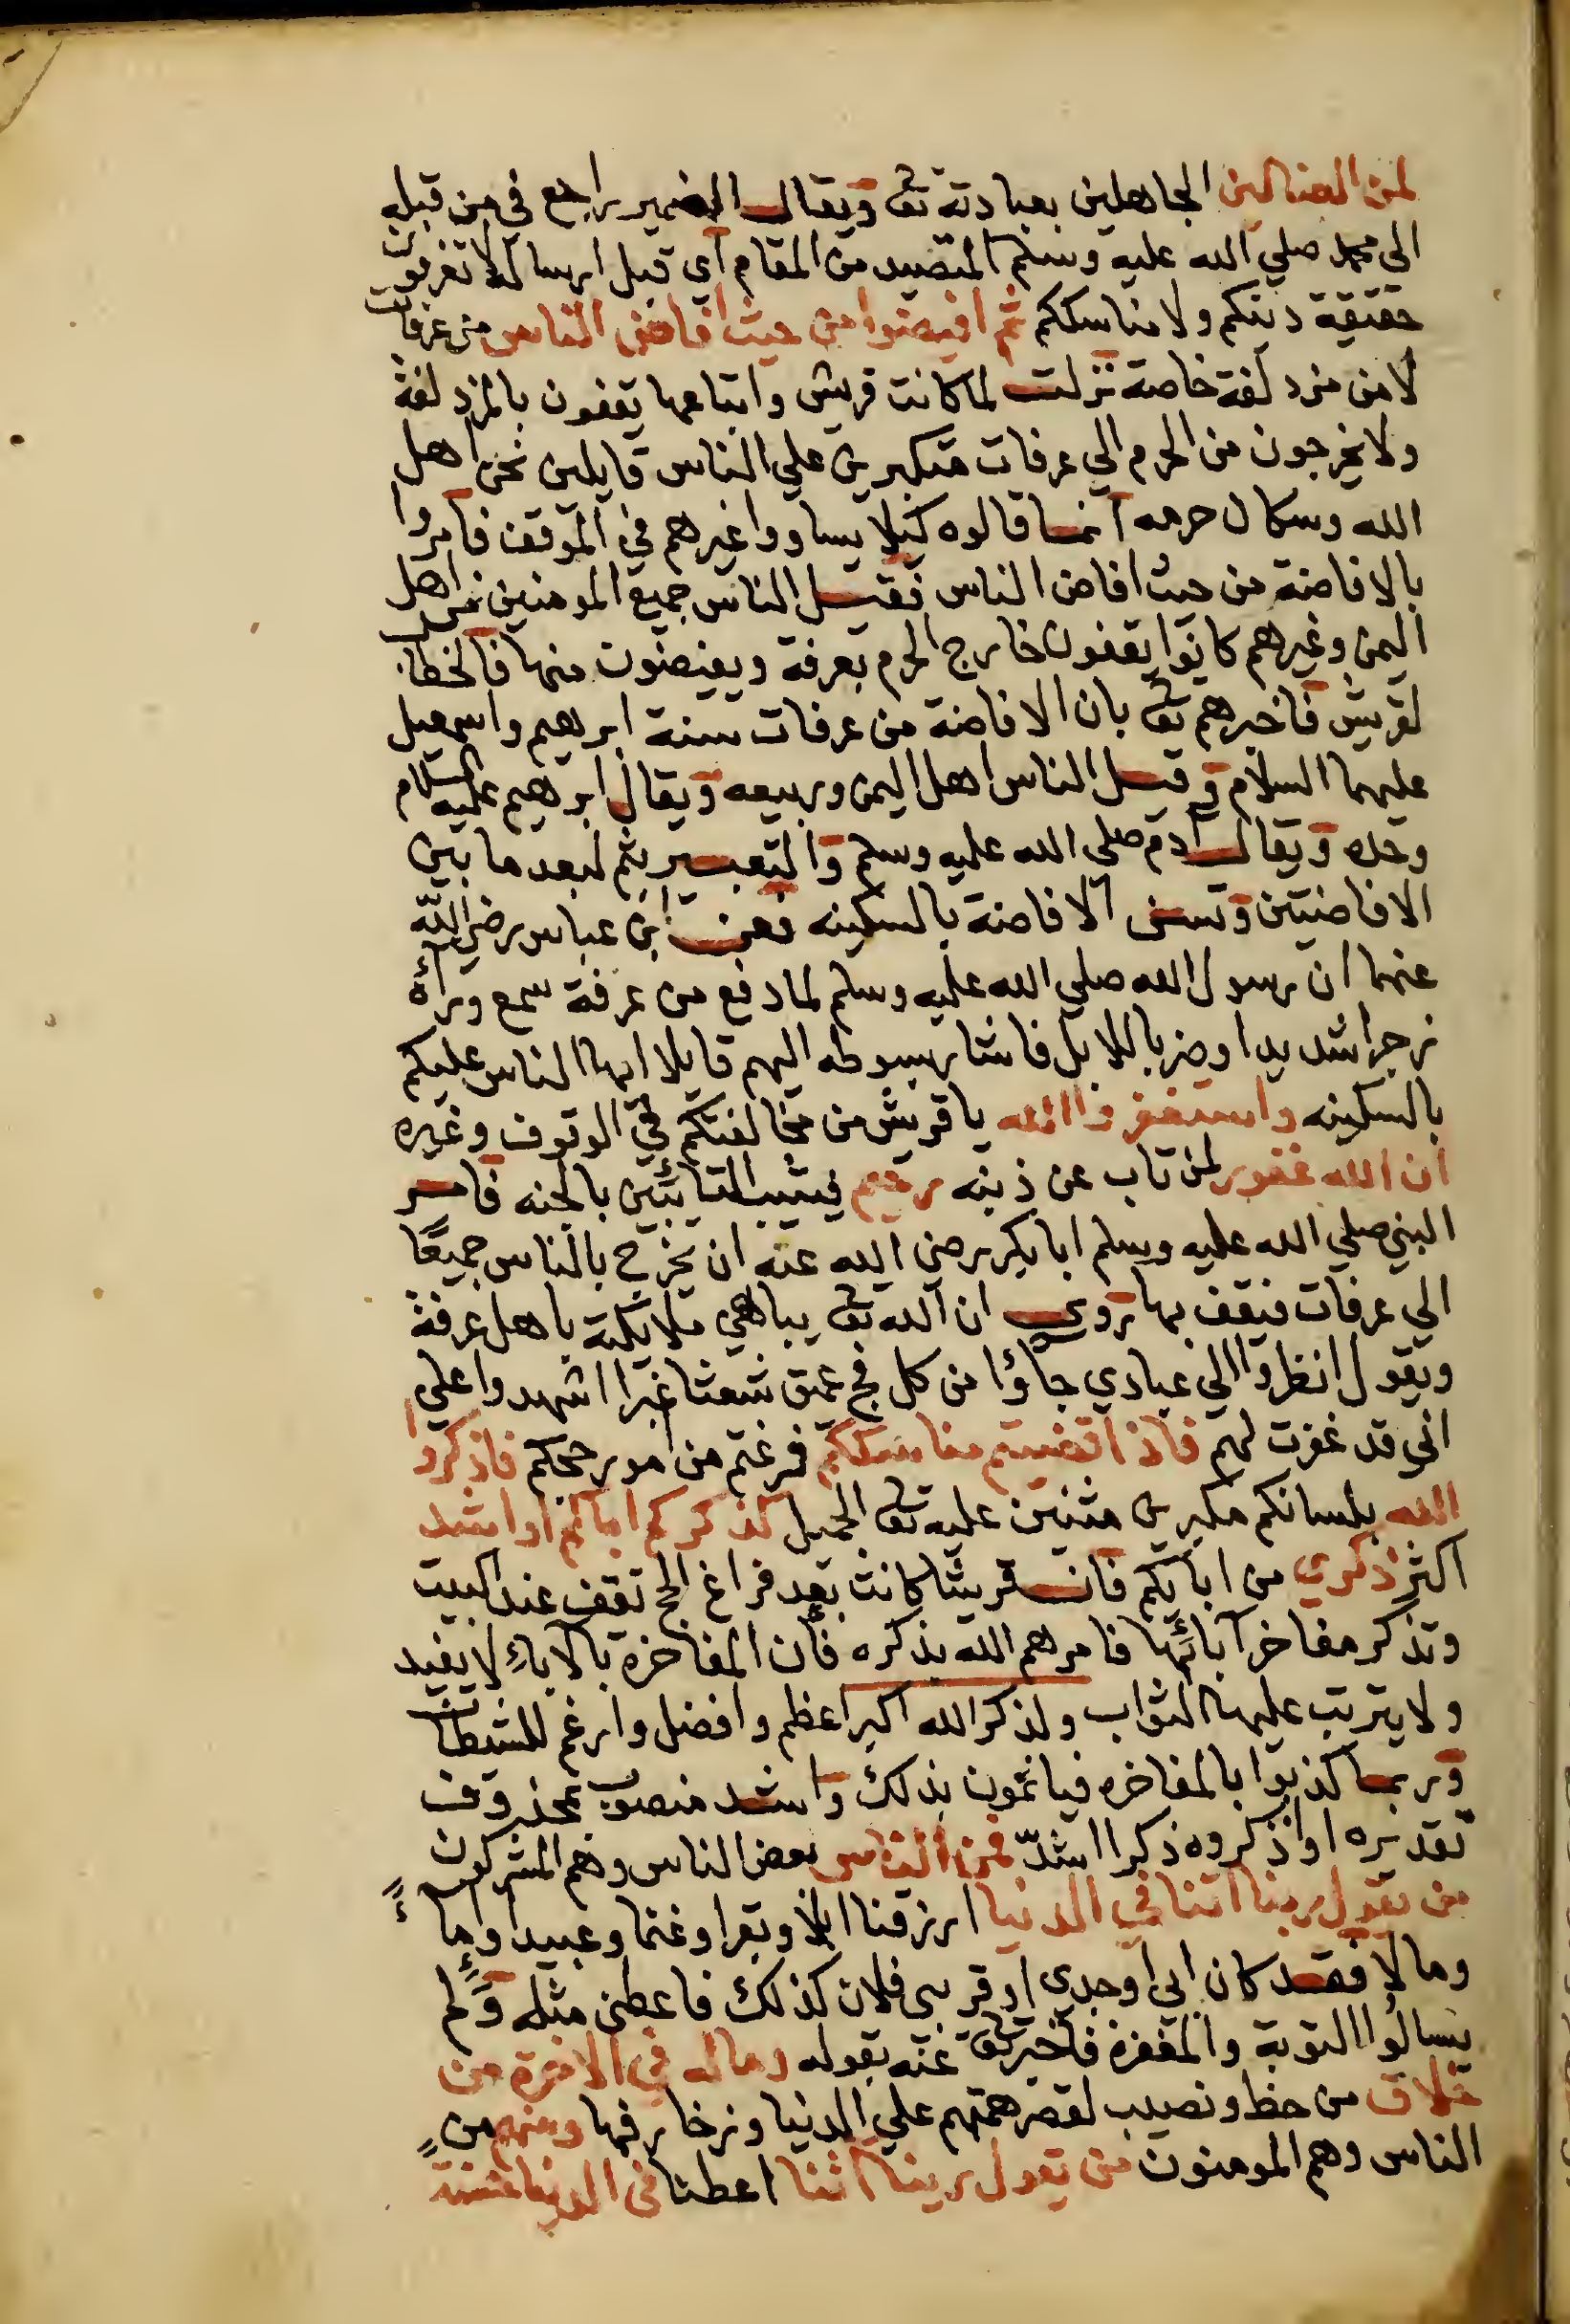 لمن الضالين الجاهلين بعبادته تعا ويقال الضمير راجع في من قبله
الي محمد صلي الله عليه وسلم المتصيد من المقام اي قبل ارساله لا تعرفون
حقيقة دينكم ولا مناسككم ثم افيضوا من حيث افاض الناس من عرفات
لا من مزدلفة خاصة نزلت لما كانت قريش واتباعها يقفون بالمزدلفة
ولا يخرجون من الحرم الي عرفات متكبرين علي الناس قايلين نحن اهل
الله وسكان حرمه انما قالوه كيلا يساووا غيرهم في الموقف فامروا
بالافاضة من حيث افاض الناس فقيل الناس جميع المومنين من اهل
اليمن وغيرهم كانوا يقفون خارج الحرم بعرفة ويفيضون منها فالخطاب
لقريش فاخبرهم تعا بان الافاضة من عرفات سنة ابرهيم واسمعيل
عليهما السلام وقيل الناس اهل اليمن وربيعه ويقال ابرهيم عليه السلام
وحده ويقال ادم صلى الله عليه وسلم والتعبير بثم لبعد ما بين
الافاضتين وتسن الافاضة بالسكينه فعن ابن عباس رضي الله
عنهما ان رسول الله صلي الله عليه وسلم لما دفع من عرفة سمع وراءه
زجرا شديدا وضربا للابل فاشار بسوطه اليهم قايلا ايها الناس عليكم
بالسكينه واستغفروا الله يا قريش من مخالفتكم في الوقوف وغيره
ان الله غفور لمن تاب عن ذنبه رحيم فيثيب التائبين بالجنه فامر
النبي صلي الله عليه وسلم ابا بكر رضي الله عنه ان يخرج بالناس جميعًا
الي عرفات فيقف بها روي ان الله تعا يباهي ملايكته باهل عرفة
ويقول انظروا الي عبادي جاؤا من كل فج عميق شعثا غبرا اشهدوا علي
اني قد غفرت لهم فاذا قضيتم مناسككم فرغتم من امور حجكم فاذكروا
الله بلسانكم مكبرين مثنين عليه تعا الجميل كذكركم اباكم او اشد
اكثر ذكري من ابائكم فان قريشا كانت بعد فراغ الحج تقف عند البيت
وتذكر مفاخر آبائها فامرهم الله بذكره فان المفاخره بالاباء لا يفيد
ولا يترتب عليها الثواب ولذكر الله اكبر اعظم وافضل وارغم للشيطان
وربما كذبوا بالمفاخره فياثمون بذلك واشد منصوب بمحذوف
تقديره او اذكروه ذكرا اشدّ فمن الناس بعض الناس وهم المشركون
من يقول ربنا اتنا في الدنيا ارزقنا ابلا وبقرا وغنما وعبيدا واماءً
ومالا فقد كان ابي او جدي او قريبي فلان كذلك فاعطني مثله ولم
يسالوا التوبة والمغفرة فاخبر تعا عنه بقوله وماله في الاخرة من
خلاق من حظ ونصيب لقصر همتهم علي الدنيا وزخارفها ومنهم من
الناس وهم المومنون من يقول ربنا اتنا اعطنا في الدنيا حسنة